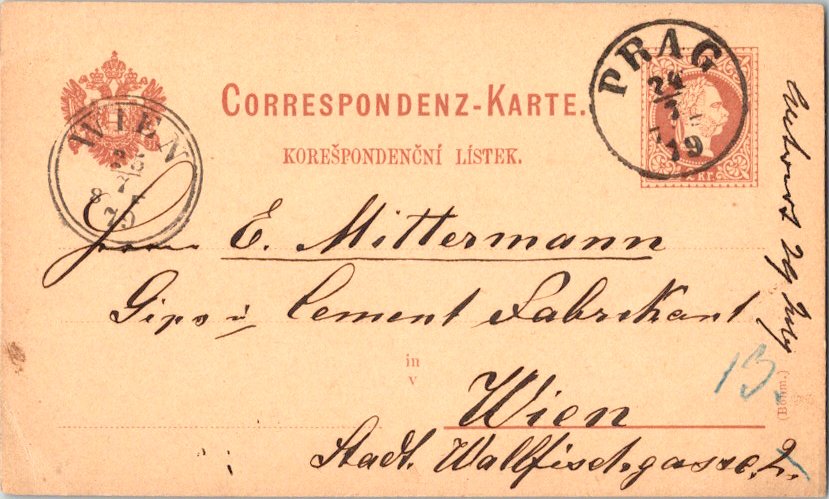 CORRESPONDENZ-KARTE.
KOREŠPONDENČNÍ LÍSTEK.
PRAG
24
7
79
2 KR.
WIEN
25
7
8 F
79
Herrn E. Mittermann
Gips u Cement Fabrikant
in
v
Wien
Stadt. Wallfischgasse 2.
13.
(Böhm.)
29 July